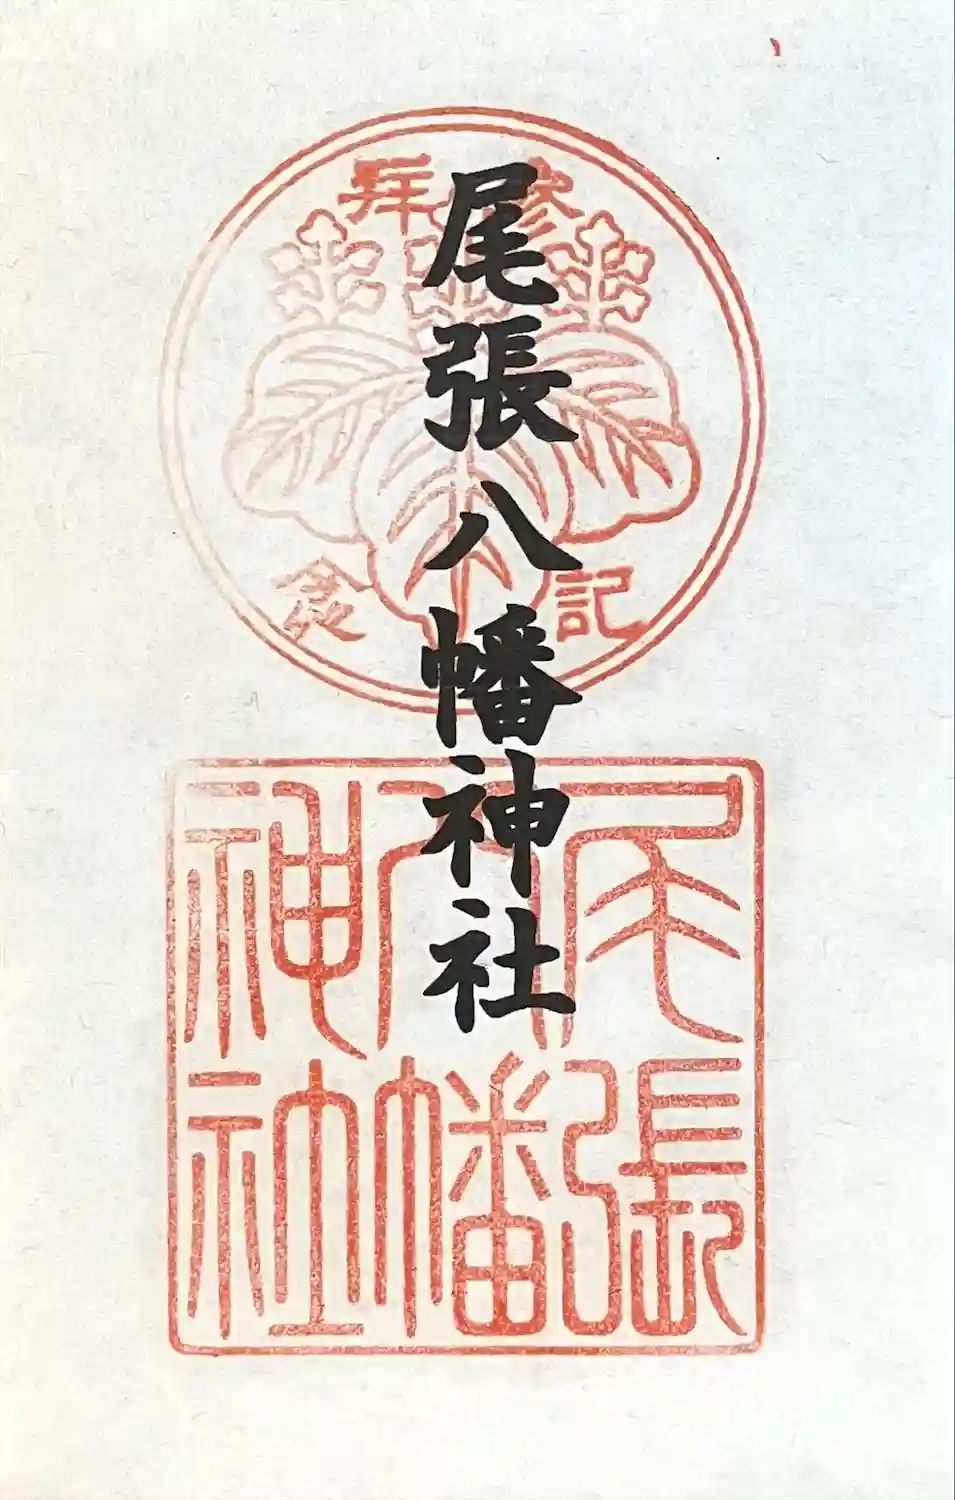 尾張八幡神社
参拝
記念
尾張
八幡
神社